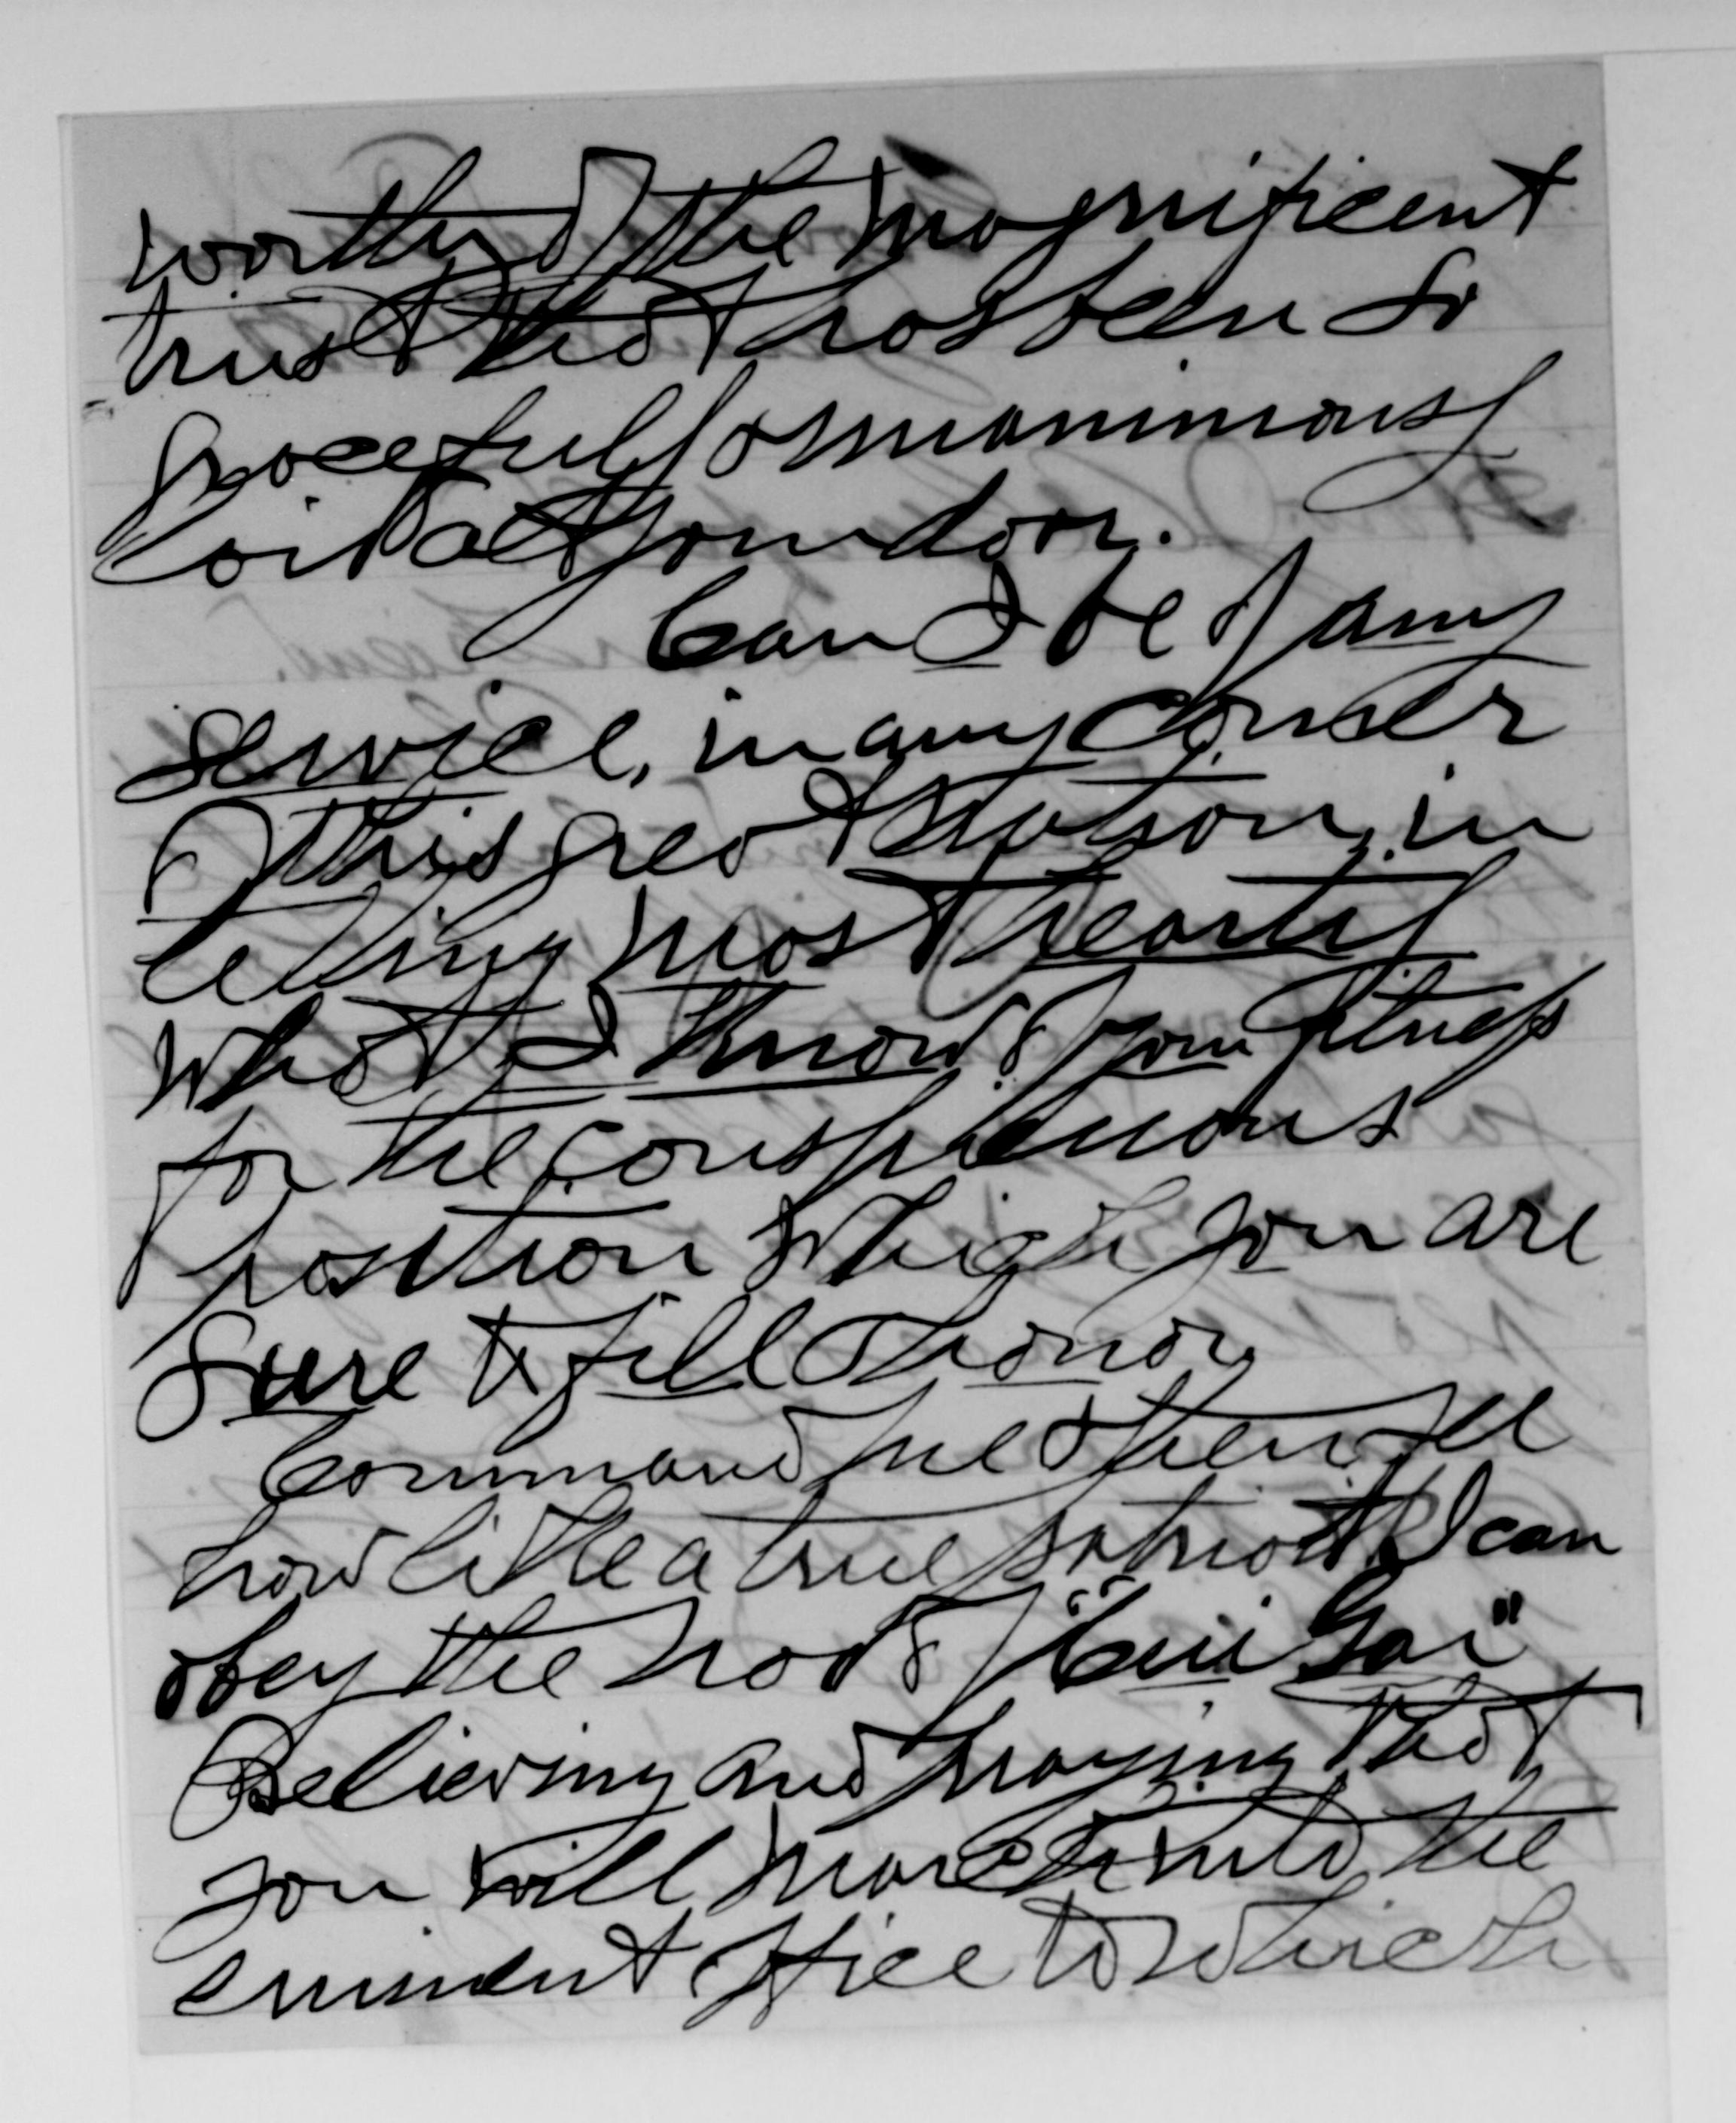 worthy of the magnificent
trust that has been so
gracefully & unanimously
laid at your door.
Can I be of any
service, in any corner
of this great Nation, in
telling most heartily
what I know of your fitness
for the conspicuous
position which you are
sure to fill & honor,
Command me & then see
how like a true patriot I can
obey the nod of "Cui Gai"
Believing and praying that
you will march into the
eminent office to which